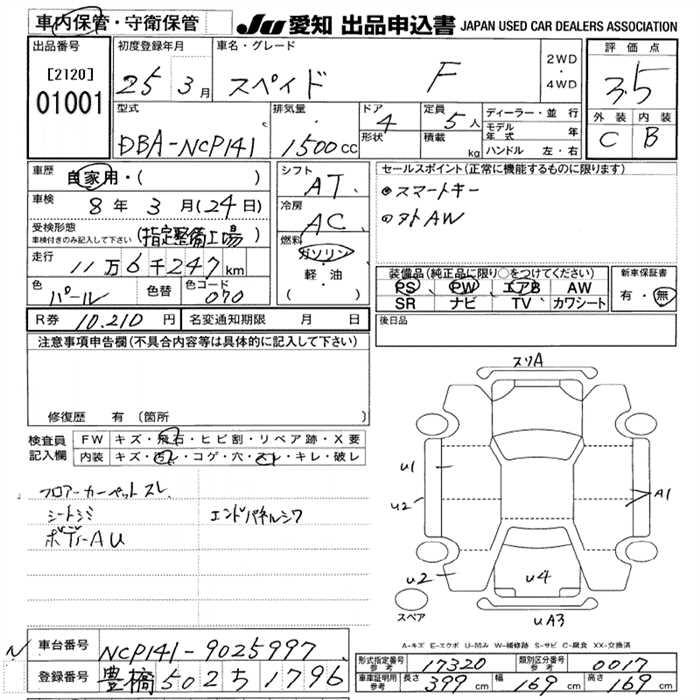 車内保管・守衛保管 JU 愛知 出品申込書 JAPAN USED CAR DEALERS ASSOCIATION
出品番号 初度登録年月 車名・グレード 2WD・4WD 評価点
[2120] 25 3月 スペイド F 3.5
01001 型式 排気量 ドア 4 定員 5人 ディーラー・並行 外装 内装
DBA-NCP141 c 1500cc 形状 積載 kg モデル年式 年 C B
ハンドル 左・右
車歴 自家用・( ) シフト AT セールスポイント(正常に機能するものに限ります)
車検 8年 3月(24日) 冷房 AC •スマートキー
受検形態 車検付きのみ記入して下さい (指定整備工場) 燃料 ガソリン AW
走行 11万6千247km 軽・油 装備品(純正品に限り○をつけてください) 新車保証書
色 パール 色替 色コード 070 ( ) PS、PW、エアB AW 有・無
SR ナビ TV カワシート
R券 10,210円 名変通知期限 月 日 後日品
注意事項申告欄(不具合内容等は具体的に記入して下さい)
修復歴 有(箇所 )
検査員記入欄 FW キズ・飛石・ヒビ割・リペア跡・X要
内装 キズ・汚レ・コゲ・穴・スレ・キレ・破レ
フロアーカーペットスレ
シートシミ エンドパネルシワ
ボデーAU
スリA
U1
U2 A1
U2 U4
スペア UA3
A-キズ E-エクボ U-凹み W-補修跡 S-サビ C-腐食 XX-交換済
N 車台番号 NCP141-9025997
登録番号 豊橋 502 す 1796
形式指定番号 参考 17320 類別区分番号 参考 0017
車庫証明用 参考 長さ 399cm 幅 169cm 高さ 169cm